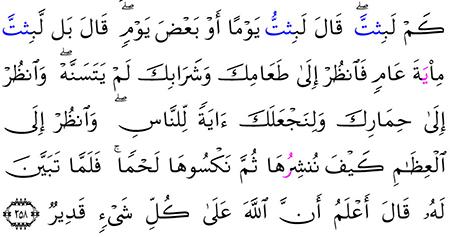 كَمْ لَبِثتَّۖ قَالَ لَبِثتُّ يَوْمًا أَوْ بَعْضَ يَوْمٍۖ قَالَ بَل لَّبِثتَّ
مِاْيَةَ عَامٍ فَٱنظُرْ إِلَىٰ طَعَامِكَ وَشَرَابِكَ لَمْ يَتَسَنَّهْۖ وَٱنظُرْ
إِلَىٰ حِمَارِكَ وَلِنَجْعَلَكَ ءَايَةً لِّلنَّاسِۖ وَٱنظُرْ إِلَى
ٱلْعِظَامِ كَيْفَ نُنشِرُهَا ثُمَّ نَكْسُوهَا لَحْمًاۚ فَلَمَّا تَبَيَّنَ
لَهُۥ قَالَ أَعْلَمُ أَنَّ ٱللَّهَ عَلَىٰ كُلِّ شَيْءٍ قَدِيرٌ ٢٥٨